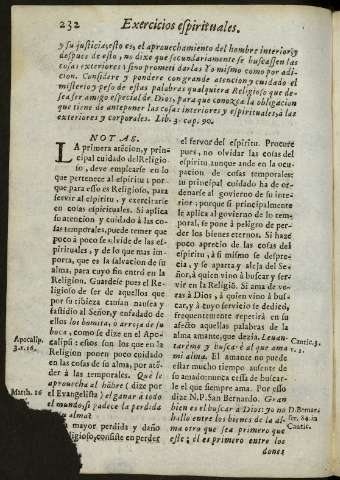 232 Exercicios espirituales.
y su justicia; esto es, el aprouechamiento del hombre interior; y
despues de esto, no dixo que secundariamente se buscassen las
cosas exteriores: sino prometi darlas Yo mismo como por adi-
cion. Considere y pondere con grande atencion y cuidado el
misterio y peso de estas palabras qualquiera Religioso que de-
sea ser amigo especial de Dios, para que conozca la obligacion
que tiene de anteponer las cosas interiores y espirituales, à las
exteriores y corporales. Lib. 3. cap. 90.
NOTAS.
LA primera atēcion, y prin-
cipal cuidado del Religio-
so, deve emplearse en lo
que pertenece al espiritu: por-
que para esso es Religioso, para
servir al espiritu, y exercitarse
en cosas espirituales. Si aplica
su atencion y cuidado à las co-
sas temporales, puede temer que
poco à poco se olvide de las es-
pirituales, y de lo que mas im-
porta, que es la salvacion de su
alma, para cuyo fin entrò en la
Religion. Guardese pues el Re-
ligioso de ser de aquellos que
por su tibieza causan nausea y
fastidio al Señor, y enfadado de
ellos los bomita, o arroja de su
boca, como se dize en el Apo-
calipsi: essos son los que en la
Religion ponen poco cuidado
en las cosas de su alma, por atē-
der à las temporales. Què le
aprouecha al hōbre (dize por
el Evangelista) el ganar à todo
el mundo, si padece la perdida
su alma?
mayor perdida y daño
Religioso, consiste en perder
Apocalip.
3. v. 16.
Matth. 16
el fervor del espiritu. Procure
pues, no olvidar las cosas del
espiritu aunque ande en la ocu-
pacion de cosas temporales:
su principal cuidado ha de or-
denarse al govierno de su inte-
rior; porque si principalmente
le aplica al govierno de lo tem-
poral, se pone à peligro de per-
der los bienes eternos. Si haze
poco aprecio de las cosas del
espiritu, à sì mismo se despre-
cia, y se aparta y aleja del Se-
ñor, à quien vino à buscar y ser-
vir en la Religiō. Si ama de ve-
ras à Dios, à quien vino à bus-
car, y à cuyo servicio se dedicò,
frequentemente repetirà en su
afecto aquellas palabras de la
alma amante, que dezia. Leuan-
tarème y buscarè al que ama
mi alma. El amante no puede
estar mucho tiempo ausente de
su amado: nunca cessa de buscar-
le el que siempre ama. Por esso
dize N.P. San Bernardo. Gran
bien es el buscar à Dios: yo no
hallo entre los bienes de la al-
ma otro que sea primero que
este; èl es primero entre los
dones
Cantic. 3.
v. 2.
D. Bernar.
ser. 84. in
Cantic.